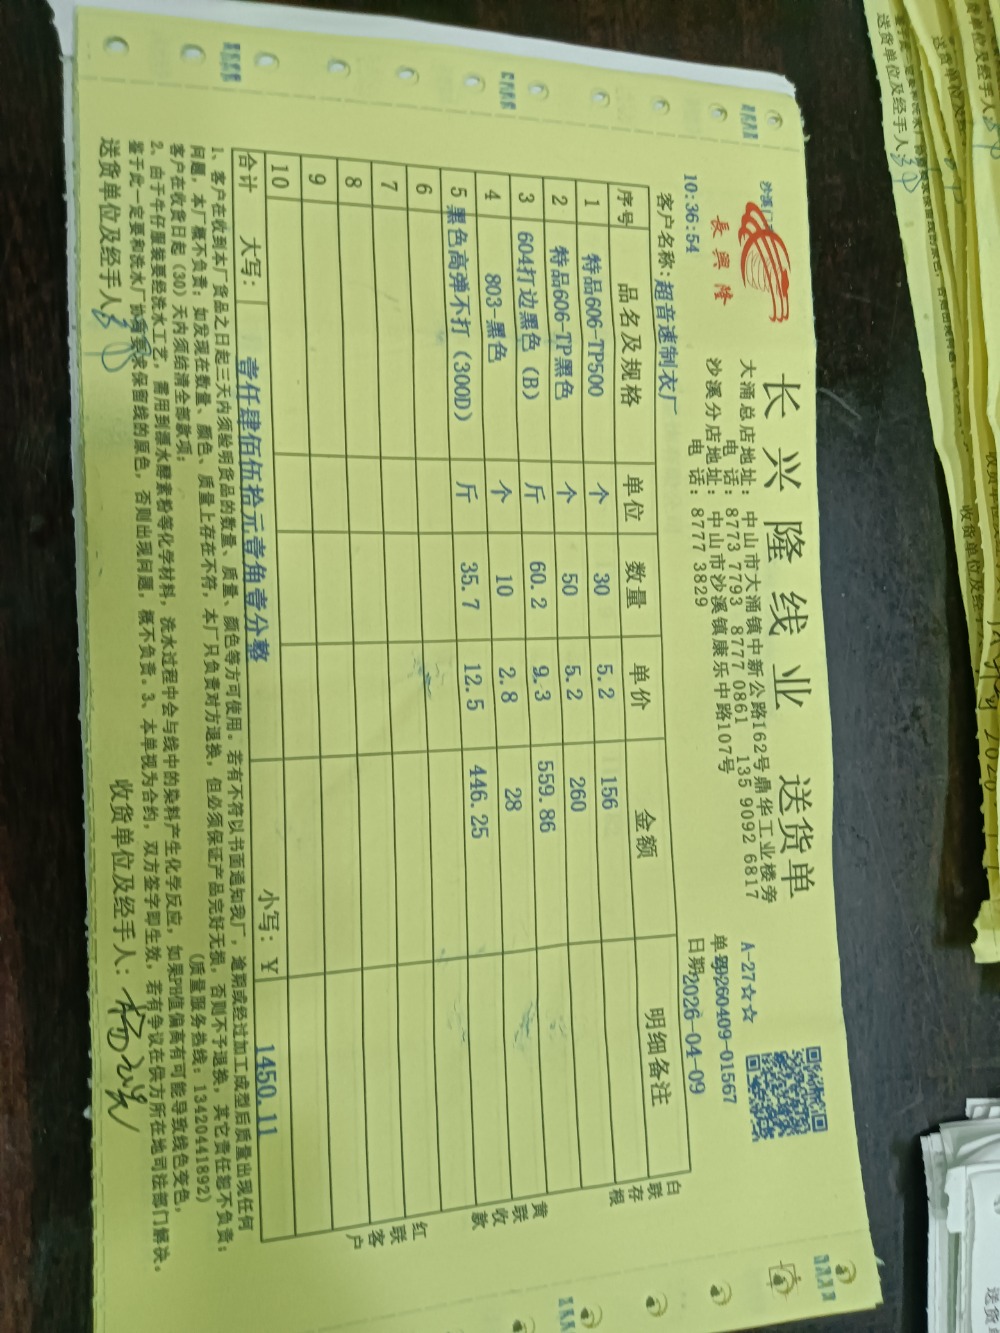 长兴隆线业 送货单
長興隆
沙溪
大涌总店地址：中山市大涌镇中新公路162号鼎华工业楼旁
电话：8773 7793 8777 0861 135 9092 6817
沙溪分店地址：中山市沙溪镇康乐中路107号
电话：8777 3829
A-27☆☆
单号20260409-01567
日期2026-04-09
10:36:54
客户名称：超音速制衣厂
序号 品名及规格 单位 数量 单价 金额 明细备注
1 特品606-TP500 个 30 5.2 156
2 特品606-TP黑色 个 50 5.2 260
3 604打边黑色（B） 斤 60.2 9.3 559.86
4 803-黑色 个 10 2.8 28
5 黑色高弹不打（300D） 斤 35.7 12.5 446.25
6
7
8
9
10
合计 大写： 壹仟肆佰伍拾元壹角壹分整 小写：￥ 1450.11
白联存根
黄联收款
红联客户
1、客户在收到本厂货品之日起三天内须验明货品的数量、质量、颜色等方可使用。若有不符以书面通知我厂，逾期或经过加工成型后质量出现任何
问题，本厂概不负责；如发现在数量、颜色、质量上存在不符，本厂只负责对方退换，但必须保证产品完好无损，否则不予退换，其它责任恕不负责；
客户在收货日起（30）天内须结清全部款项； （质量服务热线：13420441892）
2、由于牛仔服装要经洗水工艺，需用到漂水酵素粉等化学材料，洗水过程中会与线中的染料产生化学反应，如果PH值偏高有可能导致线色变色，
鉴于此一定要和洗水厂协商要求保留线的原色，否则出现问题，概不负责。3、本单视为合约，双方签字即生效，若有争议在供方所在地司法部门解决。
送货单位及经手人： 收货单位及经手人：
送货单位及经手人
送货单位及经手人